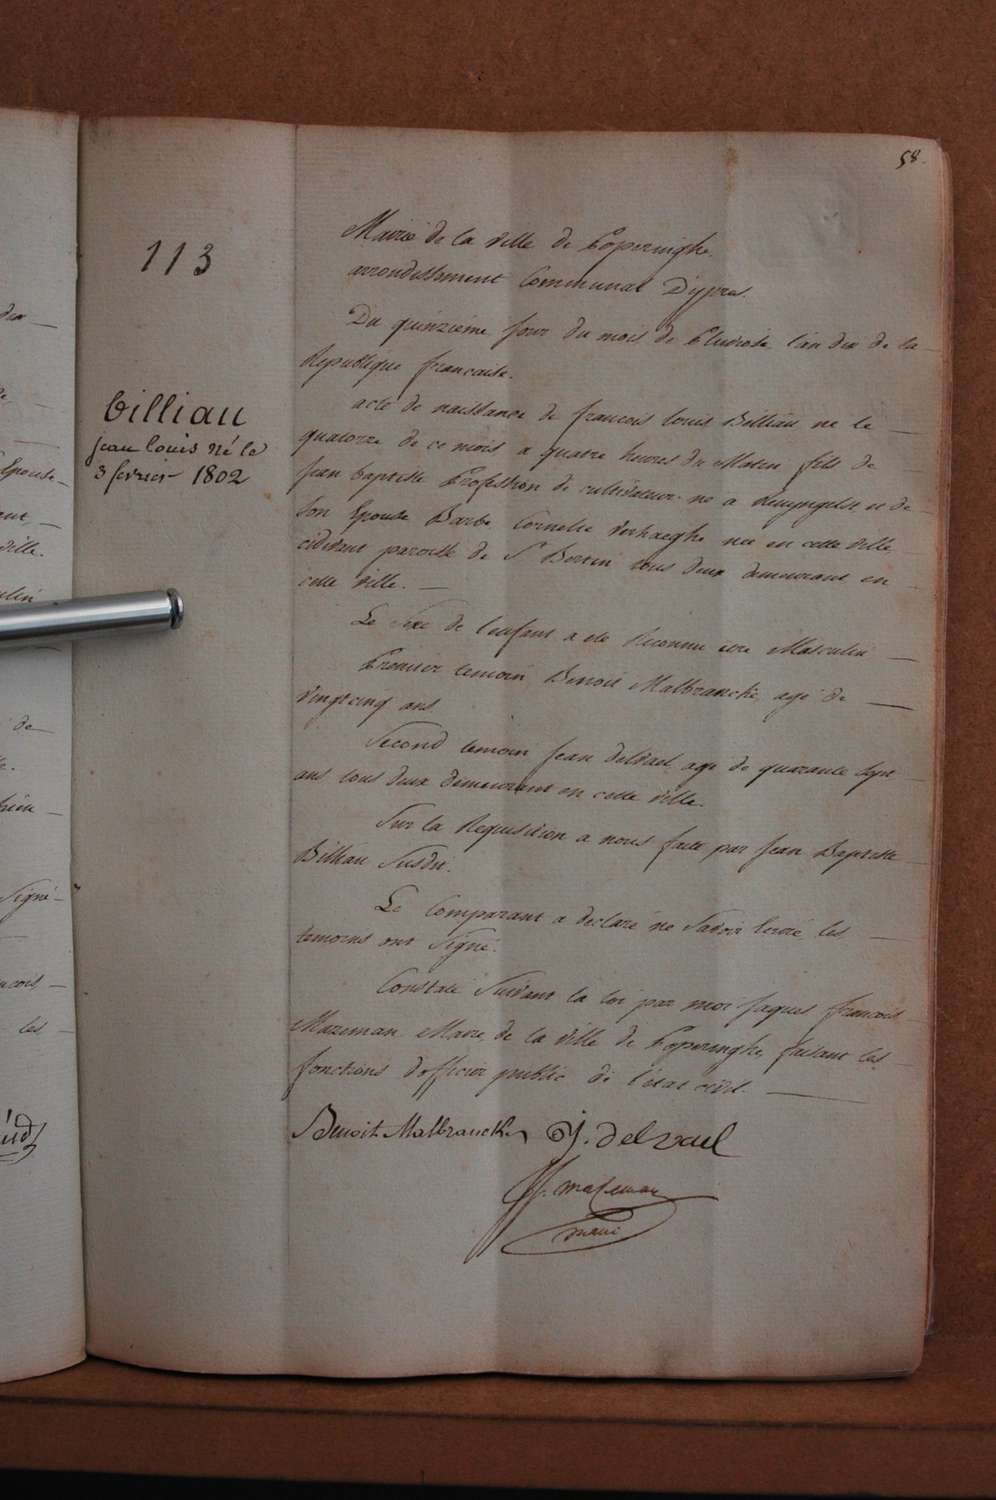 58.
113
Mairie de la ville de Poperinghe
arrondissement Communal D'ypres.
Du quinzieme jour du mois de Pluviose l'an dix de la
Republique francaise.
billiau
jean louis né le
3 fevrier 1802
acte de naissance de francois louis Billiau ne le
quatorze de ce mois a quatre heures du Matin fils de
Jean baptiste Profession de cultivateur ne a Reninghelst et de
Son Epouse Barbe Cornelie Verhaeghe nee en cette ville
cidevant paroisse de St Bertin tous deux demeurant en
cette ville.
Le Sexe de l'enfant a ete Reconnu etre Masculin
Premier temoin Benoit Malbrancke age de
vingtcinq ans
Second temoin Jean delvael age de quarante sept
ans tous deux demeurant en cette ville.
Sur la Requisition a nous faite par Jean Baptiste
Billiau Susdit.
Le Comparant a declaré ne Savoir Ecrire les
temoins ont Signé.
Constaté Suivant la loi par moi Jaques francois
Mazeman Maire de la ville de Poperinghe faisant les
fonctions d'officier public de l'état civil.
Benoit Malbrancke J. delvael
JF. mazeman
maire